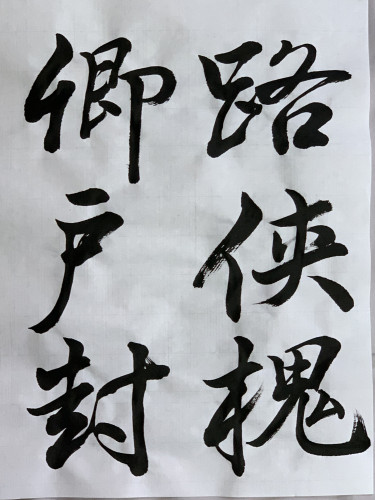 路侠槐
卿户封